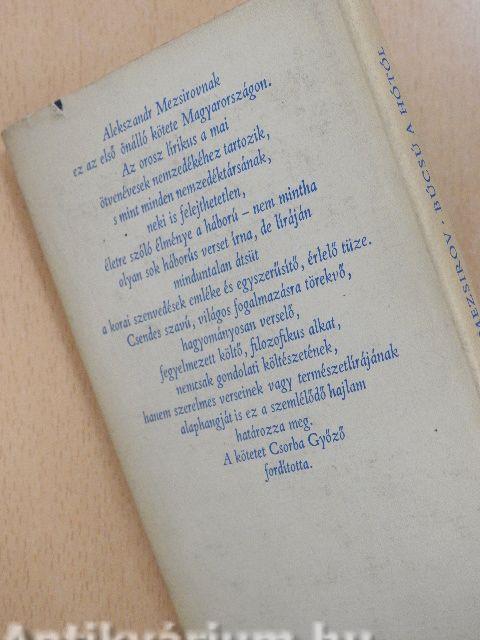 Alekszandr Mezsirovnak
ez az első önálló kötete Magyarországon.
Az orosz lírikus a mai
ötvenévesek nemzedékéhez tartozik,
s mint minden nemzedéktársának,
neki is felejthetetlen,
életre szóló élménye a háború – nem mintha
olyan sok háborús verset írna, de líráján
minduntalan átsüt
a korai szenvedések emléke és egyszerűsítő, érlelő tüze.
Csendes szavú, világos fogalmazásra törekvő,
hagyományosan verselő,
fegyelmezett költő, filozofikus alkat,
nemcsak gondolati költészetének,
hanem szerelmes verseinek vagy természetlírájának
alaphangját is ez a szemlélődő hajlam
határozza meg.
A kötetet Csorba Győző
fordította.
MEZSIROV · BÚCSÚ A HÓTÓL
Antikvárium.hu